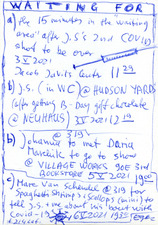 WAITING FOR
a) the 15 minutes in the waiting
area" after J.S.'s 2nd COVID
shot to be over
3 V 2021
Jacob Javits Center 11 29
b) J.S. (in WC) @ HUDSON YARDS
(after getting B-Day gift chocolate
@ NEUHAUS 3 V 2021 12 19
b) Johanna @ 319 to meet Dana
to go to show
@ VILLAGE WORKS 90E 3rd
BOOKSTORE 5 V 2021 1900
c) Marc Van @ 319 for
Spaghetti + scallops (mini) to
tell J.S. + me about his bout with
Covid-19 6 V 2021 1935